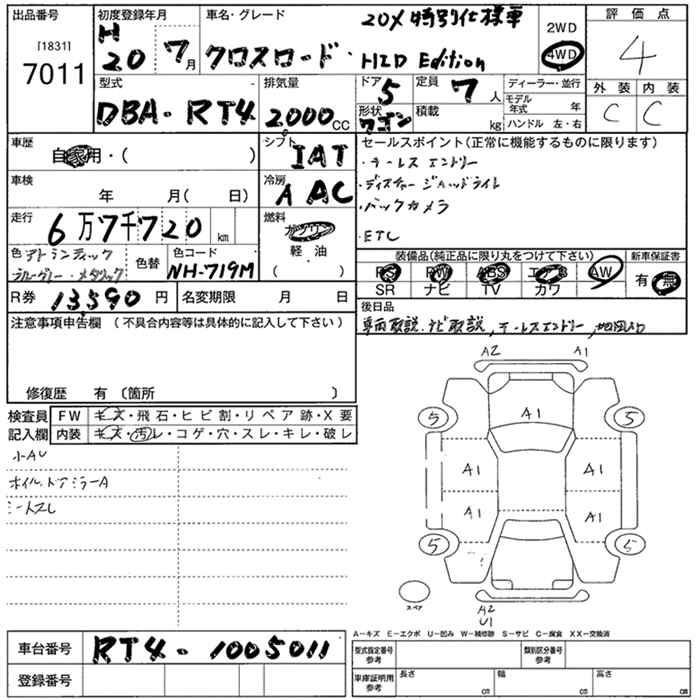 出品番号
[1831]
7011
初度登録年月
H
20 7月
車名・グレード
20X 特別仕様車
クロスロード・HID Edition
2WD
4WD
評価点
4
外装 内装
C C
型式
DBA - RT4
排気量
2000cc
ドア 5
形状 ワゴン
定員 7人
積載 kg
ディーラー・並行
モデル年式 年
ハンドル 左・右
車歴
自家用・( )
シフト
IAT
車検
年 月( 日)
冷房
A AC
走行
6万7千720km
燃料
ガソリン
軽・油
( )
色 アトランティック
ブルーグレー・メタリック
色替
色コード
NH-719M
R券 13,590円
名変期限 月 日
セールスポイント(正常に機能するものに限ります)
・テールレスエントリー
・ディスチャージヘッドライト
・バックカメラ
・ETC
装備品(純正品に限り丸をつけて下さい)
PS PW ABS エアB AW
SR ナビ TV カワ
新車保証書
有・無
後日品
車両取説、ナビ取説
注意事項申告欄(不具合内容等は具体的に記入して下さい)
修復歴 有 〔箇所 〕
検査員
記入欄
FW キズ・飛石・ヒビ割・リペア跡・X要
内装 キズ・汚レ・コゲ・穴・スレ・キレ・破レ
小AU
ホイル、ドアミラーA
シートスレ
A2 A1
A1
5 5
A1 A1
A1 A1
5 5
スペア
A2
U1
A-キズ E-エクボ U-凹み W-補修跡 S-サビ C-腐食 XX-交換済
車台番号 RT4 - 1005011
登録番号
型式指定番号
参考
類別区分番号
参考
車庫証明用
参考
長さ cm 幅 cm 高さ cm